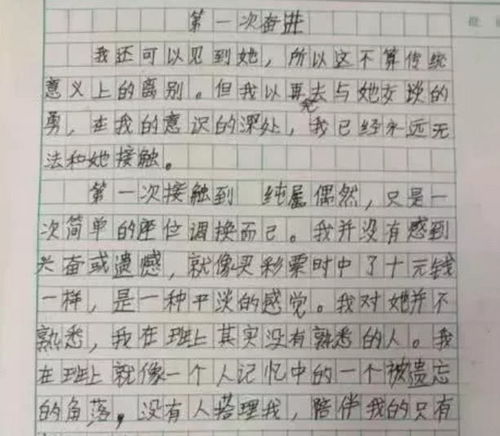 第一次奋进
我还可以见到她，所以这不算传统
意义上的离别。但我以再去与她交谈的
勇，在我的意识的深处，我已经永远无
法和她接触。
第一次接触到 纯属偶然，只是一
次简单的座位调换而已。我并没有感到
兴奋或遗憾，就像买彩票时中了十元钱
一样，是一种平淡的感觉。我对她并不
熟悉，我在班上其实没有熟悉的人。我
在班上就像一个人记忆中的一个被遗忘
的角落，没有人搭理我，陪伴我的只有